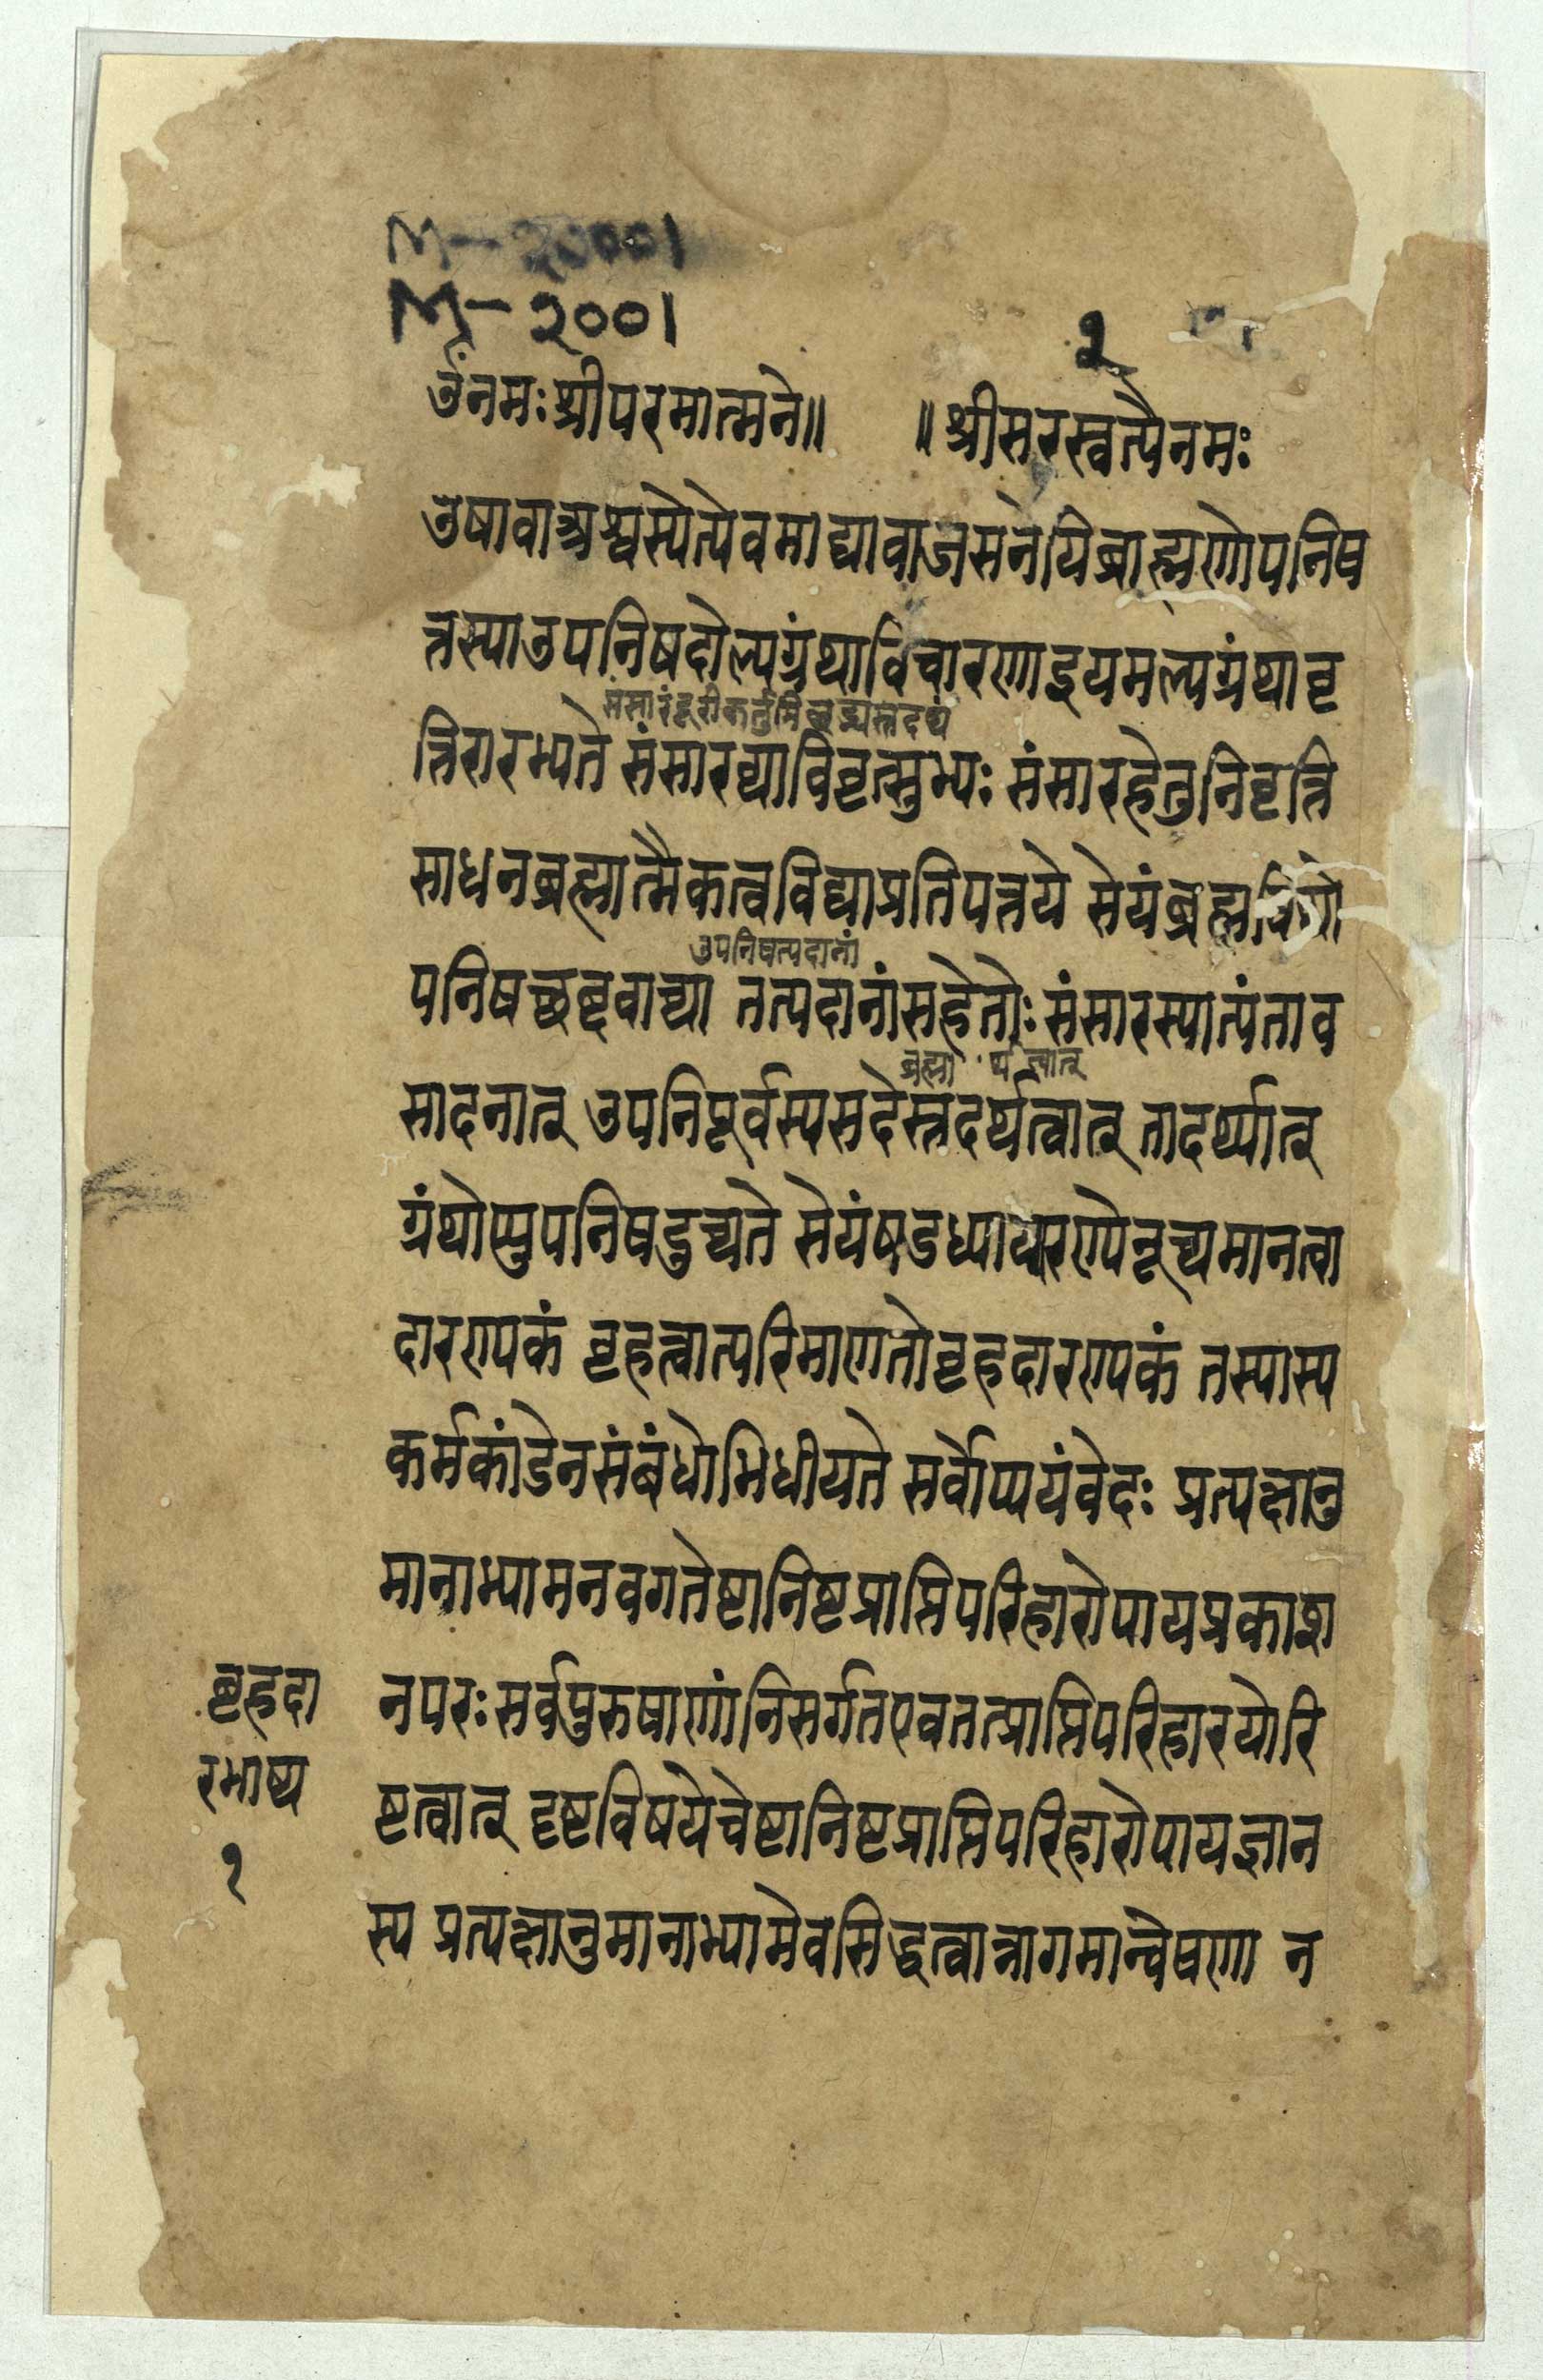 M-20001
M-2001
१
ॐनमःश्रीपरमात्मने॥ ॥श्रीसरस्वत्यैनमः
उषावाअश्वस्येत्येवमाद्यावाजसनेयिब्राह्मणोपनिष
त्तस्याउपनिषदोल्पग्रंथाविचारणाइयमल्पग्रंथावृ
संसारंदूरीकर्तुमिच्छद्भ्यस्तदर्थं
त्तिरारभ्यते संसारव्याविवृत्सुभ्यः संसारहेतुनिवृत्ति
साधनब्रह्मात्मैकत्वविद्याप्रतिपत्तये सेयंब्रह्मविद्यो
उपनिषत्पदानां
पनिषच्छब्दवाच्या तत्पदानांसहेतोः संसारस्यात्यंताव
ब्रह्मा र्थत्वात्
सादनात् उपनिपूर्वस्यसदेस्तदर्थत्वात् तादर्थ्यात्
ग्रंथोप्युपनिषदुच्यते सेयंषडध्यायारण्येनूच्यमानत्वा
दारण्यकं बृहत्त्वात्परिमाणतोबृहदारण्यकं तस्यास्य
कर्मकांडेनसंबंधोभिधीयते सर्वोप्ययंवेदः प्रत्यक्षानु
मानाभ्यामनवगतेष्टानिष्टप्राप्तिपरिहारोपायप्रकाश
नपरः सर्वपुरुषाणांनिसर्गतएवतत्प्राप्तिपरिहारयोरि
ष्टत्वात् दृष्टविषयेचेष्टानिष्टप्राप्तिपरिहारोपायज्ञान
स्य प्रत्यक्षानुमानाभ्यामेवसिद्धत्वान्नागमान्वेषणा न
बृहदा
रभाष्य
१